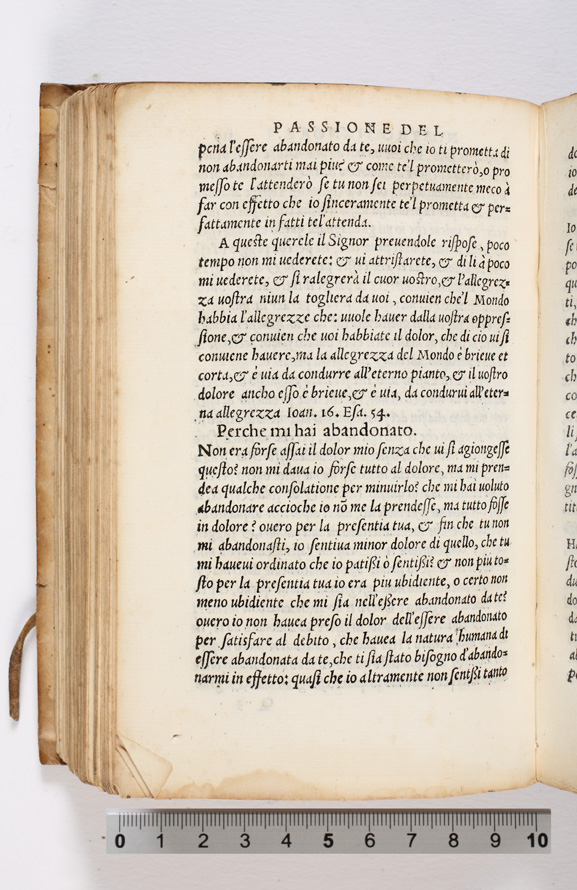 PASSIONE DEL
pena l'essere abandonato da te, uuoi che io ti prometta di
non abandonarti mai piu? & come te'l prometterò, o pro
messo te l'attenderò se tu non sei perpetuamente meco à
far con effetto che io sinceramente te'l prometta & per=
fattamente in fatti tel'attenda.
A queste querele il Signor preuendole rispose, poco
tempo non mi uederete: & ui attristarete, & di li à poco
mi uederete, & si ralegrerà il cuor uostro, & l'allegrez=
za uostra niun la togliera da uoi, conuien che'l Mondo
habbia l'allegrezze che: uuole hauer dalla uostra oppres=
sione, & conuien che uoi habbiate il dolor, che di cio ui si
conuiene hauere, ma la allegrezza del Mondo è brieue et
corta, & è uia da condurre all'eterno pianto, & il uostro
dolore ancho esso è brieue, & è uia, da condurui all'eter=
na allegrezza Ioan. 16. Esa. 54.
Perche mi hai abandonato.
Non era forse assai il dolor mio senza che ui si agiongesse
questo? non mi daua io forse tutto al dolore, ma mi pren=
dea qualche consolatione per minuirlo? che mi hai uoluto
abandonare accioche io nō me la prendesse, ma tutto fosse
in dolore? ouero per la presentia tua, & fin che tu non
mi abandonasti, io sentiua minor dolore di quello, che tu
mi haueui ordinato che io patissi ò sentissi? & non piu to=
sto per la presentia tua io era piu ubidiente, o certo non
meno ubidiente che mi sia nell'essere abandonato da te?
ouero io non hauea preso il dolor dell'essere abandonato
per satisfare al debito, che hauea la natura humana di
essere abandonata da te, che ti sia stato bisogno d'abando=
narmi in effetto: quasi che io altramente non sentissi tanto
0 1 2 3 4 5 6 7 8 9 10